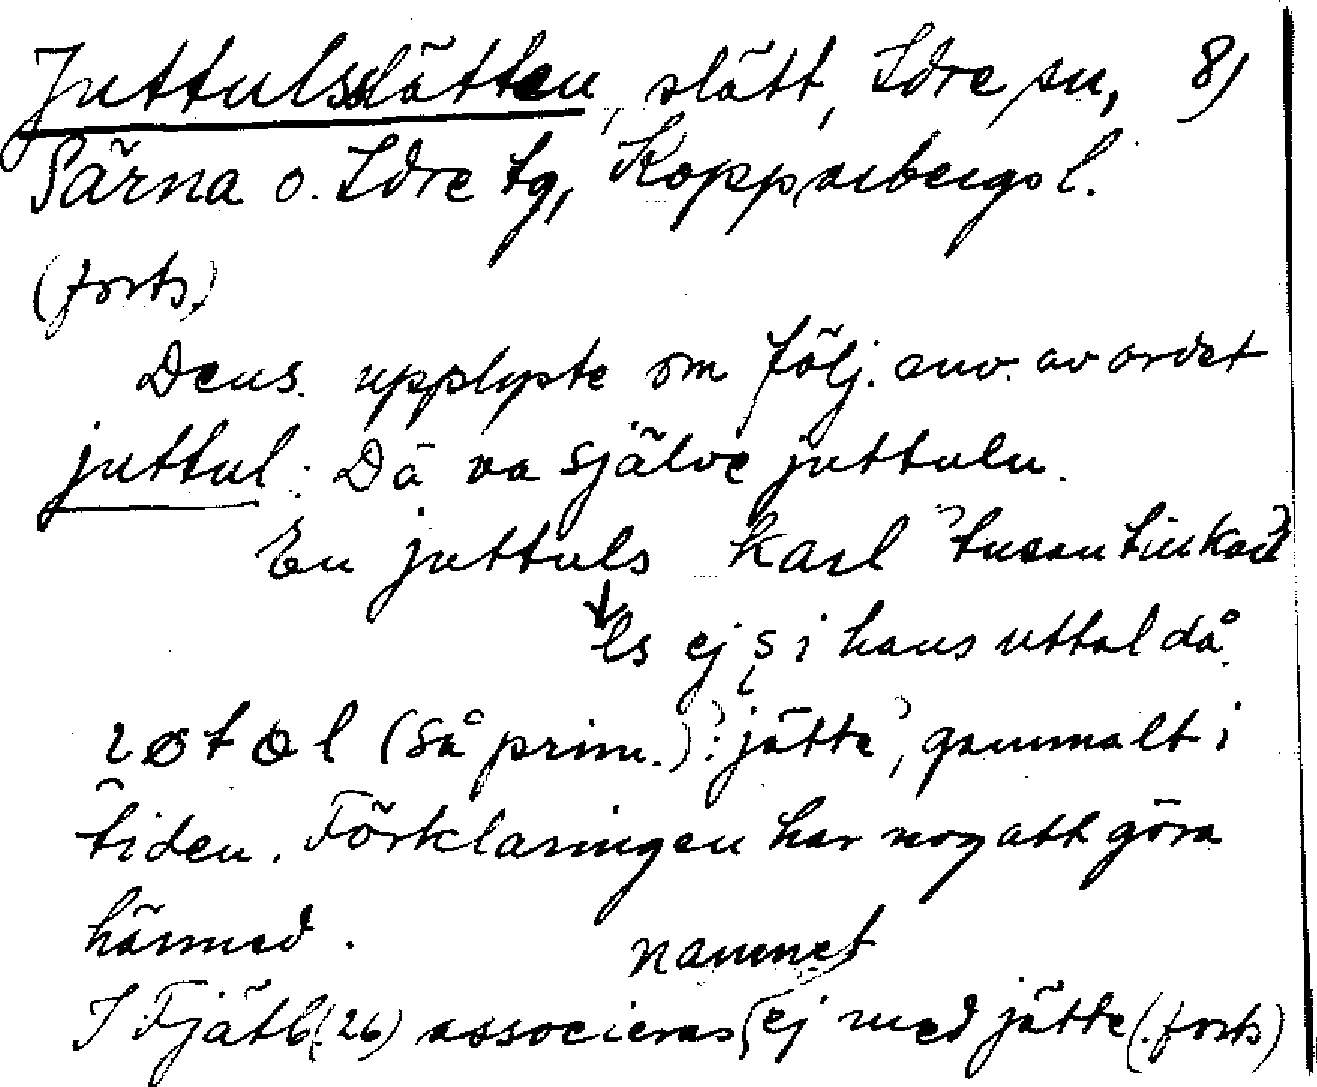 Juttulsslätten, slätt, Idre sn, 8)
Särna o. Idre tg, Kopparbergs l.
(forts.)
Dens. upplyste om följ. anv. av ordet
juttul: Dä va själve juttuln.
En juttuls karl "tusantinkarl"
ls ej ş i hans uttal då
ɩøtøl (så prim.): 'jätte', gammalt i
tiden. Förklaringen har nog att göra
härmed.
I Fjätb(26) associeras namnet ej med jätte (forts)